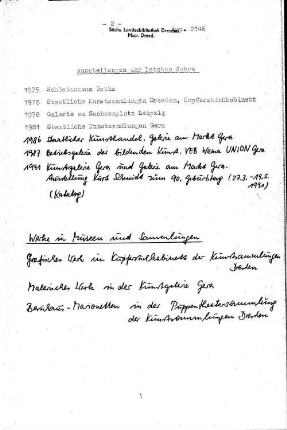 - 2 -
Sächs. Landesbibliothek Dresden
2146
Mscr. Dresd.
Ausstellungen der letzten Jahre
1975 Schloßmuseum Gotha
1978 Staatliche Kunstsammlungen Dresden, Kupferstichkabinett
1978 Galerie am Sachsenplatz Leipzig
1981 Staatliche Kunstsammlungen Gera
1986 Staatlicher Kunsthandel. Galerie am Markt Gera
1987 Betriebsgalerie der bildenden Kunst. VEB Wema UNION Gera
1991 Kunstgalerie Gera und Galerie am Markt Gera.
Ausstellung Kurt Schmidt zum 90. Geburtstag (27.3. - 19.5.
1991)
(Katalog)
Werke in Museen und Sammlungen
Grafisches Werk im Kupferstichkabinett der Kunstsammlungen
Dresden
Malerisches Werk in der Kunstgalerie Gera
Bauhaus-Marionetten in der Puppentheatersammlung
der Kunstsammlungen Dresden